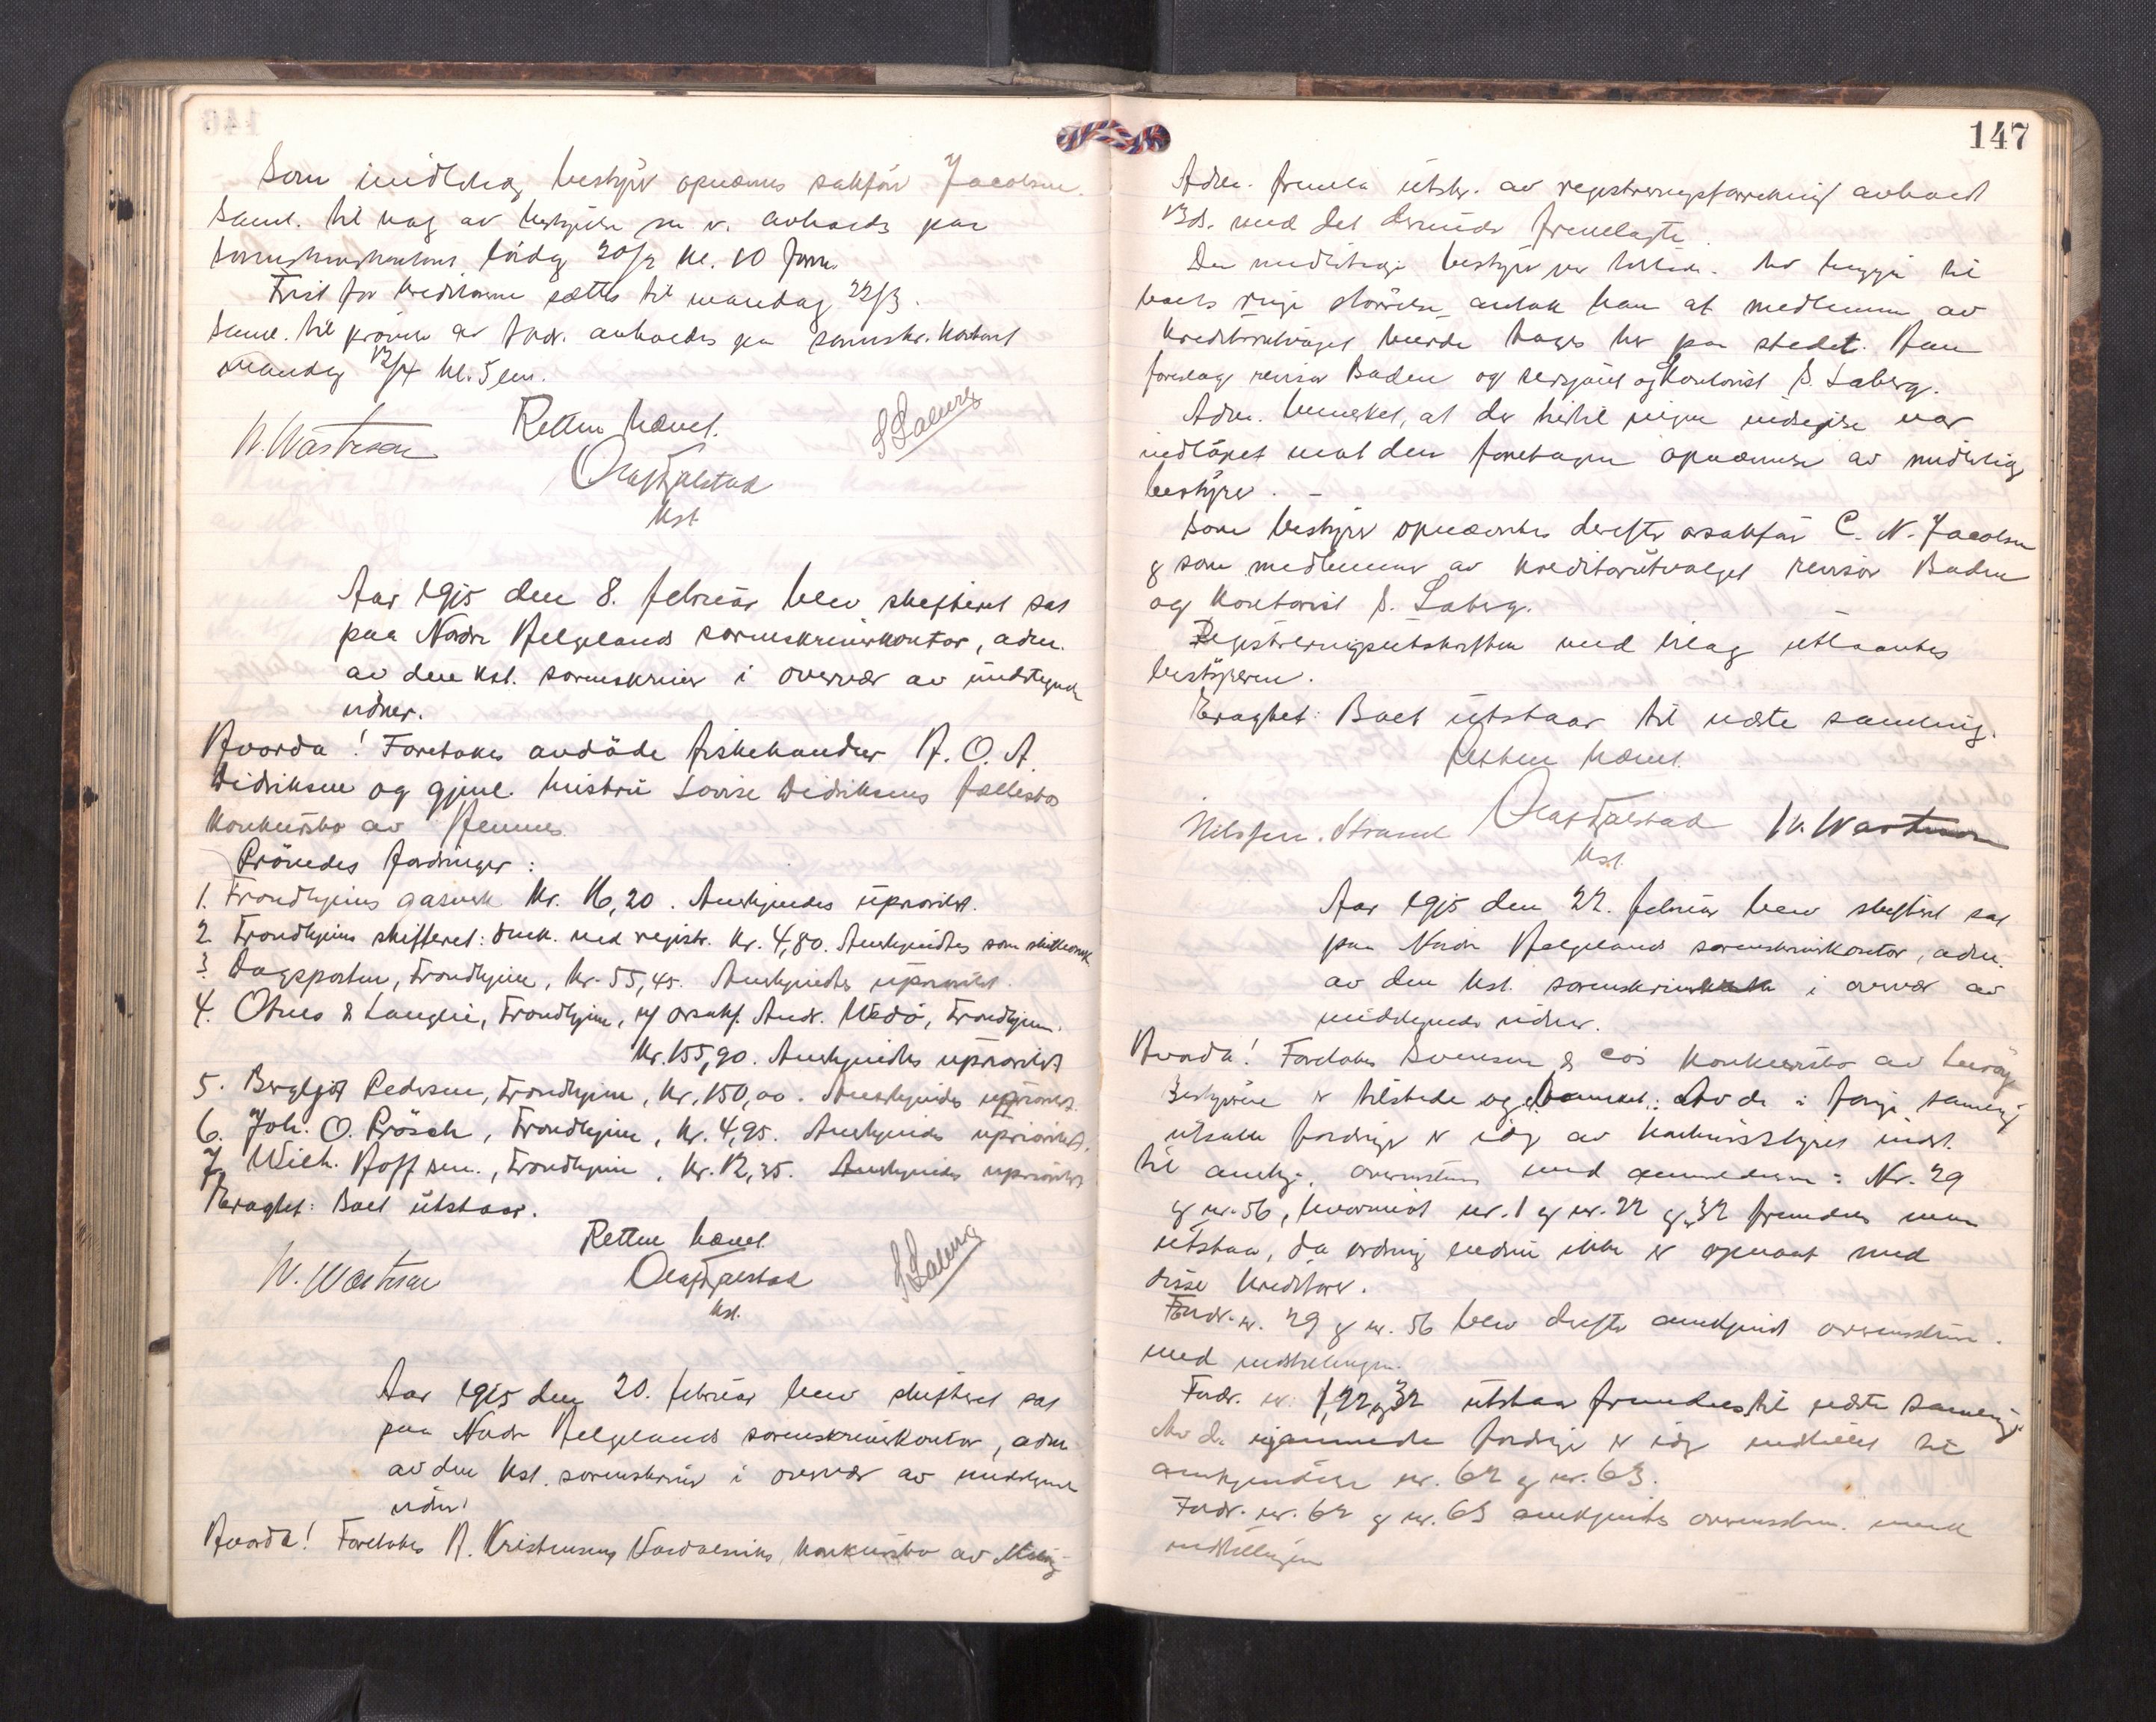 Som midlertidig bestyrer opnævnes sakfører Jacobsen.
Saml. til valg av bestyrelse m. v. avholdes paa
sorenskriverkontoret lördag 20/2 kl. 10 form.
Frist for kreditorene sættes til mandag 22/3.
Saml. til prövn. av fordr. avholdes paa sorenskr. kontoret
mandag 12/4 kl. 5 em.
Retten hævet.
W. Wastesen
Olaf Fjalstad
S Laberg
kst.
Aar 1915 den 8. februar blev skifteret sat
paa Nordre Helgelands sorenskriverkontor, adm.
av den kst. sorenskriver i overvær av undertegnede
vidner.
Hvorda! Foretokes avdöde fiskehandler H. O. A.
Didriksen og gjenl. hustru Lovise Didriksens fællesbo
konkursbo av Hennes.
Prövedes fordringer:
1. Trondhjems gasverk kr. 16,20. Anerkjendes uprioritet.
2. Trondhjems skifteret: omk. ved registr. kr. 4,80. Anerkjendtes som skifteomk.
3. Dagsposten, Trondhjem, kr. 55,45. Anerkjendtes uprioritet.
4. Otnes & Langlie, Trondhjem, v/ orsakf. Andr. Wedö, Trondhjem.
kr. 155,90. Anerkjendtes uprioritet
5. Bergljot Pedersen, Trondhjem, kr. 150,00. Anerkjendes uprioritet.
6. Joh. O. Prösch, Trondhjem, kr. 4,95. Anerkjendes uprioritet.
7. Wilh. Hoff sen., Trondhjem, kr. 12,35. Anerkjendes uprioritet
Eragtet: Boet utstaar.
Retten hævet.
W. Wastesen
Olaf Fjalstad
S Laberg
kst.
Aar 1915 den 20. februar blev skifteret sat
paa Nordre Helgelands sorenskriverkontor, adm.
av den kst. sorenskriver i overvær av undertegnede
vidner.
Hvorda! Foretokes H. Kristensens konkursbo av
147
Adm. fremla utskr. av registreringsforretning avholdt
med det derunder fremlagte.
Den midlertidige bestyrer var tilstede. Av hensyn til
boets ringe störrelse antok han at medlemmer av
kreditorutvalget burde tages her paa stedet. Han
foreslog revisor Baden og og kontorist S. Laberg.
Adm. bemerket, at der hertil ingen indsigelse var
indlöpet mot den foretagne opnævnelse av midlertidig
bestyrer. –
Som bestyrer opnævntes derefter orsakför C. N. Jacobsen
og som medlemmer av kreditorutvalget revisor Baden
og kontorist S. Laberg.
Registreringsutskriften med bilag utlaantes
bestyreren.
Eragtet: Boet utstaar til næste samling.
Retten hævet.
Nilssen. Strand
Olaf Fjalstad
W. Wastesen
kst.
Aar 1915 den 22. februar blev skifteret sat
paa Nordre Helgelands sorenskriverkontor, adm.
av den kst. sorenskriver i overvær av
undertegnede vidner.
Hvorda! Foretokes Svensen & Cos konkursbo av
Bestyreren er tilstede og bemerket: Av de i forrige samling
utsatte fordringer er idag av konkursstyret indst.
til anerkj. overensstem. med anmeldelsen: Nr. 29
og nr. 56, hvorimot nr. 1 og nr. 22 og 32 fremdeles maa
utstaa, da ordning endnu ikke er opnaaet med
disse kreditorer.
Fordr. nr. 29 og nr. 56 blev derefter anerkjendt overensstem.
med indstillingen.
Fordr. nr. 1, 22 og 32 utstaar fremdeles til næste samling.
Av de fordringer er idag indstillet til
anerkjendelse nr. 62 og nr. 63.
Fordr. nr. 62 og nr. 63 anerkjendtes overensstem. med
indstillingen